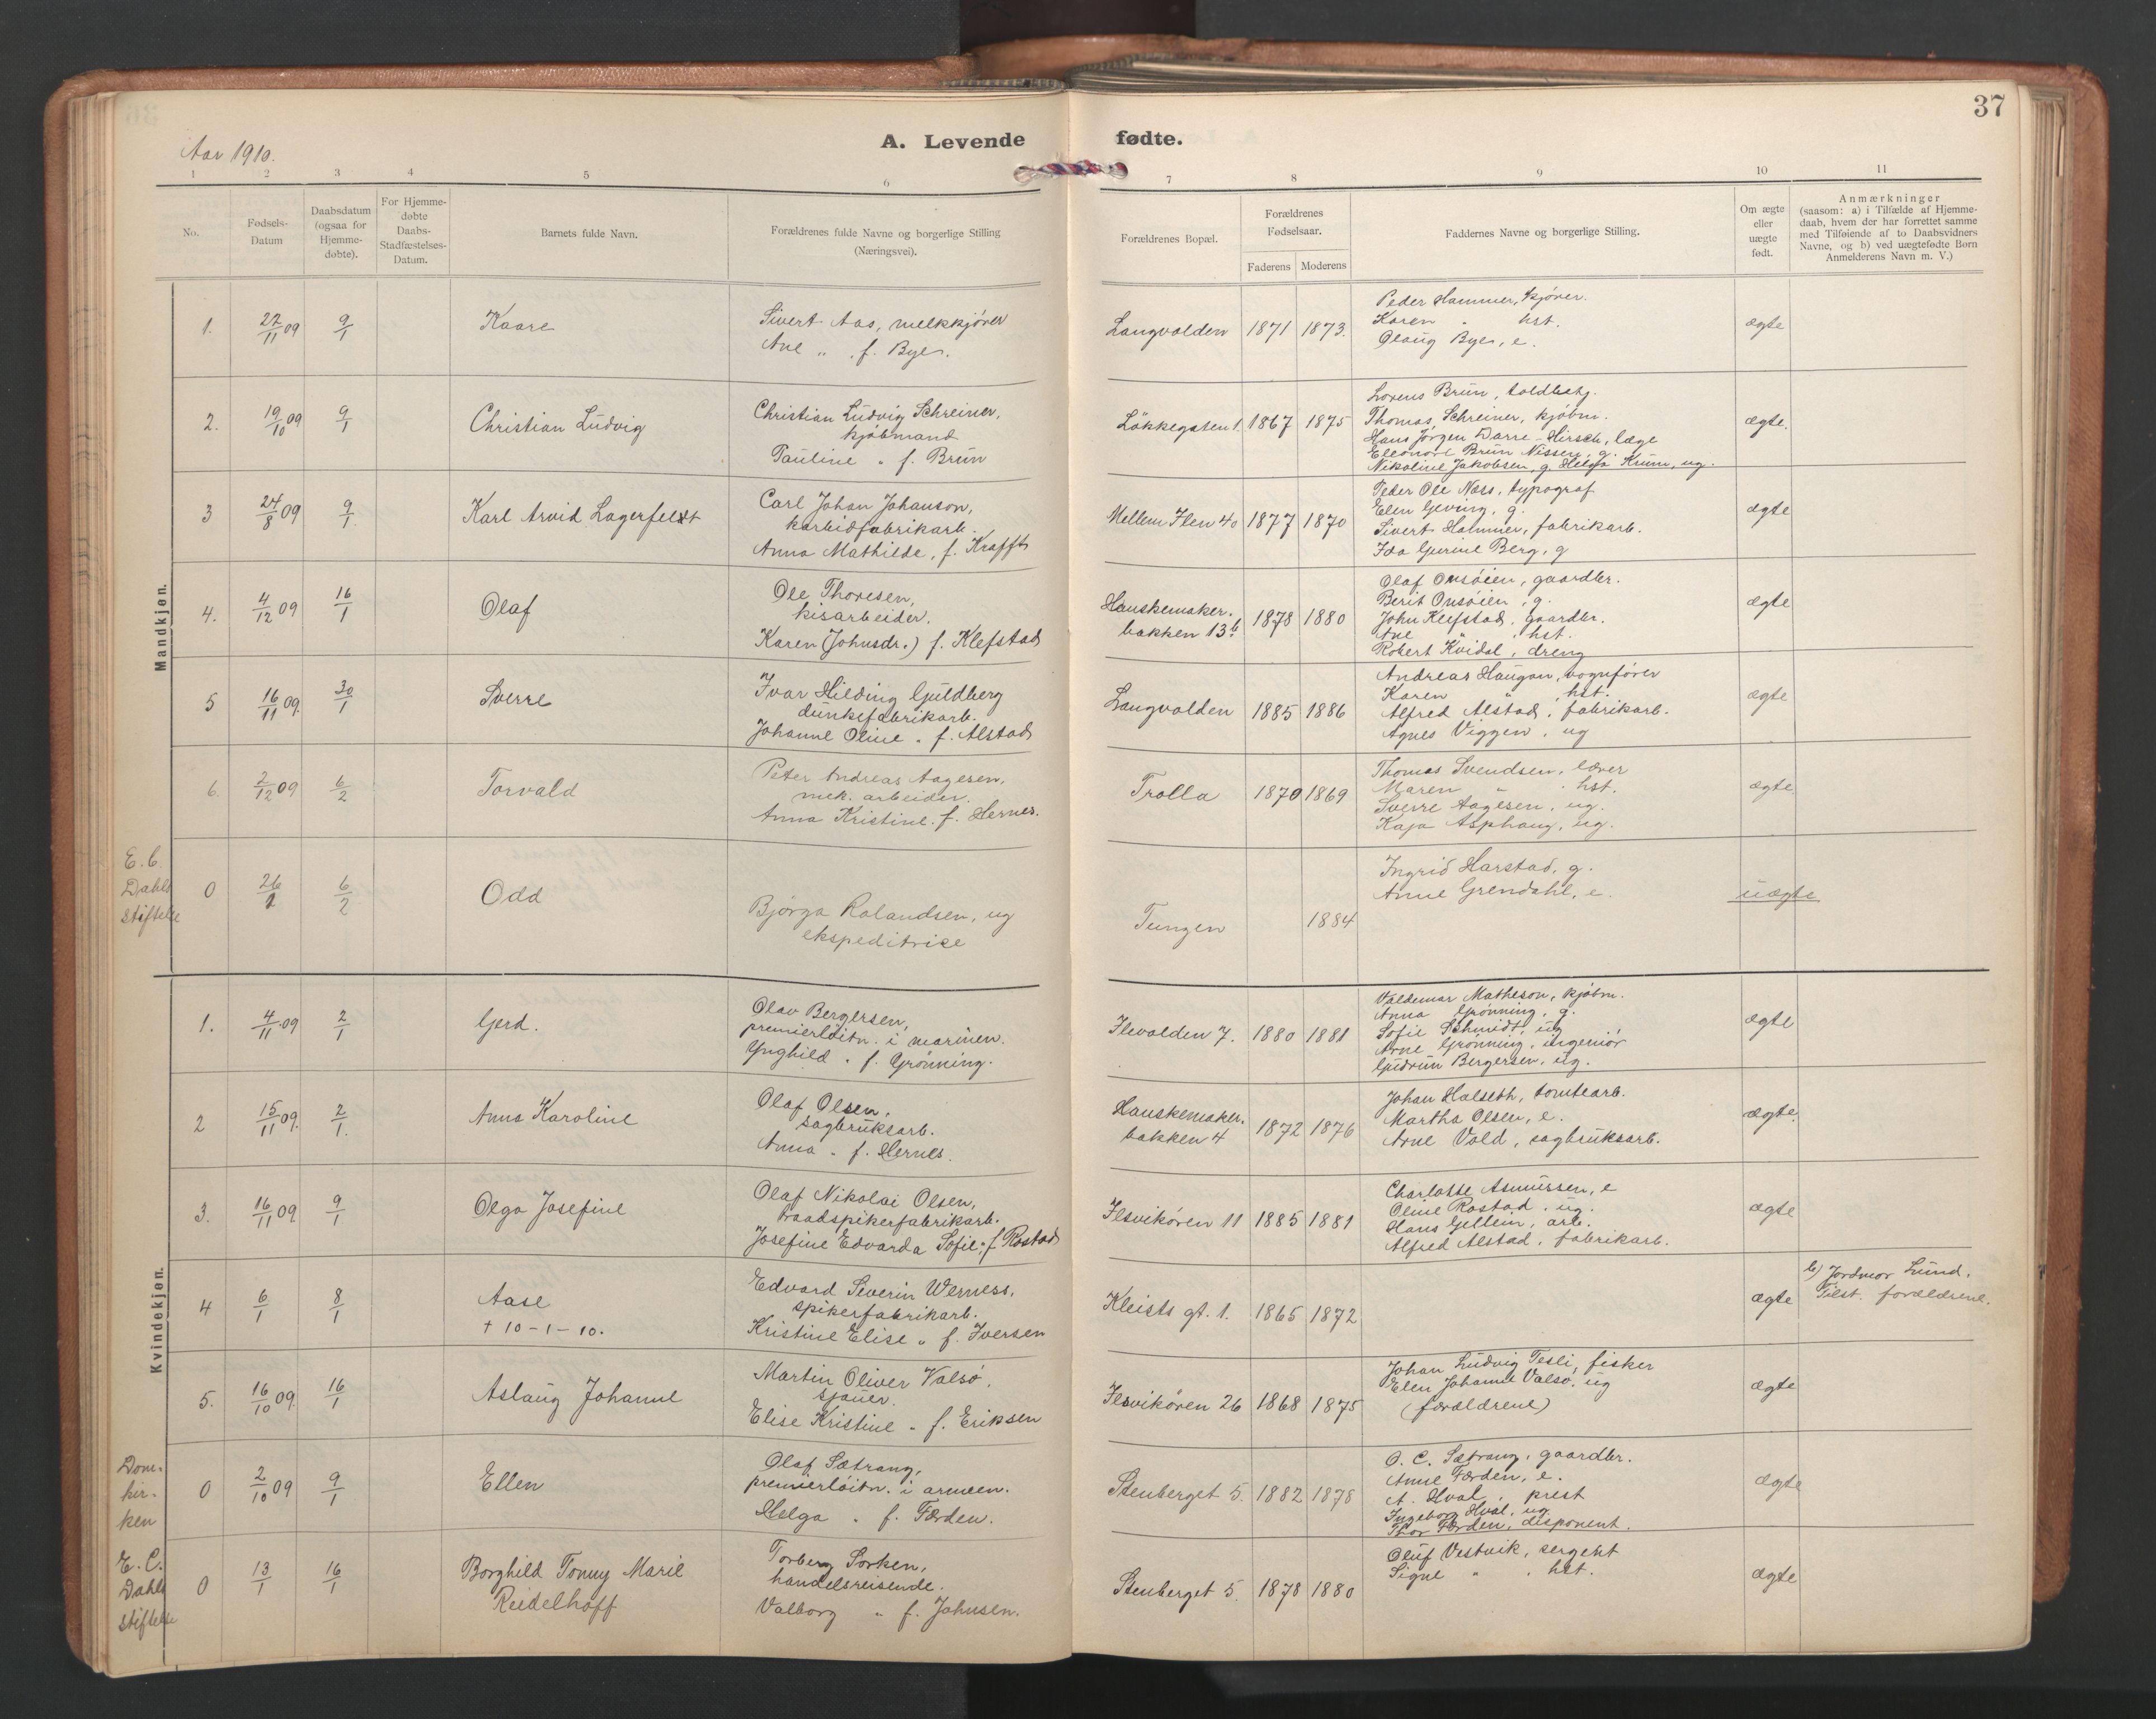 37
Aar 1910.
A. Levende fødte.
1 2 3 4 5 6 7 8 9 10 11
No.
Fødsels-
Datum
Daabsdatum
(ogsaa for
Hjemme-
døbte).
For Hjemme-
døbte
Daabs-
Stadfæstelses-
Datum.
Barnets fulde Navn.
Forældrenes fulde Navne og borgerlige Stilling
(Næringsvei).
Forældrenes Bopæl.
Forældrenes
Fødselsaar.
Faderens Moderens
Faddernes Navne og borgerlige Stilling.
Om ægte
eller
uægte
født.
Anmærkninger
(saasom: a) i Tilfælde af Hjemme-
daab, hvem der har forrettet samme
med Tilføiende af to Daabsvidners
Navne, og b) ved uægtefødte Børn
Anmelderens Navn m. V.)
Mandkjøn.
1. 22/11 09 9/1 Kaare
Sivert Aas, melkkjører
Ane „ . f. Byer.
Langvolden 1871 1873.
Peder Hammer, kjører.
Karen „ hst.
Olaug Byer, e.
ægte
2. 19/10 09 9/1 Christian Ludvig
Christian Ludvig Schreiner,
kjøbmand
Pauline „ f. Brun
Løkkegaten 1. 1867 1875
Lorens Brun, toldbetj.
Thomas Schreiner, kjøbm.
Hans Jørgen Darre-Hirsch, læge
Eleonore Brun Nissen, g.
Nikoline Jakobsen, g. Helga Krum, ug.
ægte.
3 24/8 09 9/1. Karl Arvid Lagerfelxt
Carl Johan Johanson,
karbidfabrikarb.
Anna Mathilde, f. Krafft
Mellem Ilen 40 1877 1870
Peder Ole Næss, typograf
Elen Geving, g.
Sivert Hammer, fabrikarb.
Ida Gurine Berg, g
ægte
4. 4/12 09 16/1 Olaf
Ole Thoresen,
kisarbeider.
Karen (Johnsdr.) f. Klefstad
Hanskemaker.
bakken 13b 1878 1880
Olaf Onsøien, gaardbr.
Berit Onsøien, g.
John Klefstad, gaardbr.
Ane „ , hst.
Robert Kvidal, dreng
ægte
5 16/11 09. 30/1 Sverre
Ivar Hilding Guldberg
dunkefabrikarb.
Johanne Oline „ f. Alstad
Langvolden 1885 1886
Andreas Haugan, vognfører
Karen „ , hst.
Alfred Alstad, fabrikarb.
Agnes Viggen, ug
ægte
6. 2/12 09 6/2 Torvald
Peter Andreas Aagesen,
mek. arbeider.
Anna Kristine. f. Hernes.
Trolla 1870 1869
Thomas Svendsen, lærer
Maren „ . hst.
Sverre Aagesen, ug.
Kaja Asphaug, ug.
ægte
E. C.
Dahls
stiftelse
0 26/1 6/2 Odd
Bjørga Rolandsen, ug
ekspeditrice
Tungen 1884
Ingrid Harstad, g.
Anne Grendahl, e.
uægte
Kvindekjøn.
1. 4/11 09 2/1 Gerd.
Olav Bergersen,
premierløitn. i marinen.
Ynghild „ f. Grønning.
Ilevolden 7. 1880 1881
Valdemar Matheson, kjøbm.
Anna Grønning, g.
Sofie Schmidt, ug
Arne Grønning, ingeniør
Gudrun Bergersen, ug.
ægte
2 15/11 09. 2/1. Anna Karoline
Olaf Olsen,
sagbruksarb.
Anna „ f. Hernes.
Hanskemaker.
bakken 4 1872 1876
Johan Halseth, tomtearb.
Martha Olsen, e.
Arne Vold, sagbruksarb.
ægte.
3. 16/11 09 9/1 Olga Josefine
Olaf Nikolai Olsen,
traadspikerfabrikarb.
Josefine Edvarda Sofie „ f. Rostad
Ilsvikøren 11 1885 1881
Charlotte Asmussen, e
Oline Rostad, ug.
Hans Gellein, arb.
Alfred Alstad, fabrikarb.
ægte
4 6/1 8/1 Aase
+ 10-1-10.
Edvard Severin Werness,
spikerfabrikarb.
Kristine Elise „ f. Iversen
Kleists gt. 1. 1865 1872
ægte
b) Jordmor Lund.
Tilst. forældrene.
5. 16/10 09. 16/1 Aslaug Johanne
Martin Oliver Valsø,
sjauer.
Elise Kristine „ f. Eriksen
Ilsvikøren 26 1868 1875
Johan Ludvig Tesli, fisker
Elen Johanne Valsø, ug
(forældrene)
ægte
Dom-
kir-
ken
0 2/10 09 9/1 Ellen
Olaf Sætrang,
premierløitn. i armeen.
Helga „ f. Færden.
Stenberget 5. 1882 1878
O. C. Sætrang, gaardbr.
Anne Færden, e.
A. Hval, prest
Ingeborg Hval, ug
Thor Færden, disponent.
ægte
E. C.
Dahls
stiftelse
0 13/1 16/1 Borghild Tonny Marie
Reidelhoff
Torberg Sorken,
handelsreisende.
Valborg „ f. Johnsen.
Stenberget 5. 1878 1880
Oluf Vestvik, sergent
Signe „ , hst.
ægte